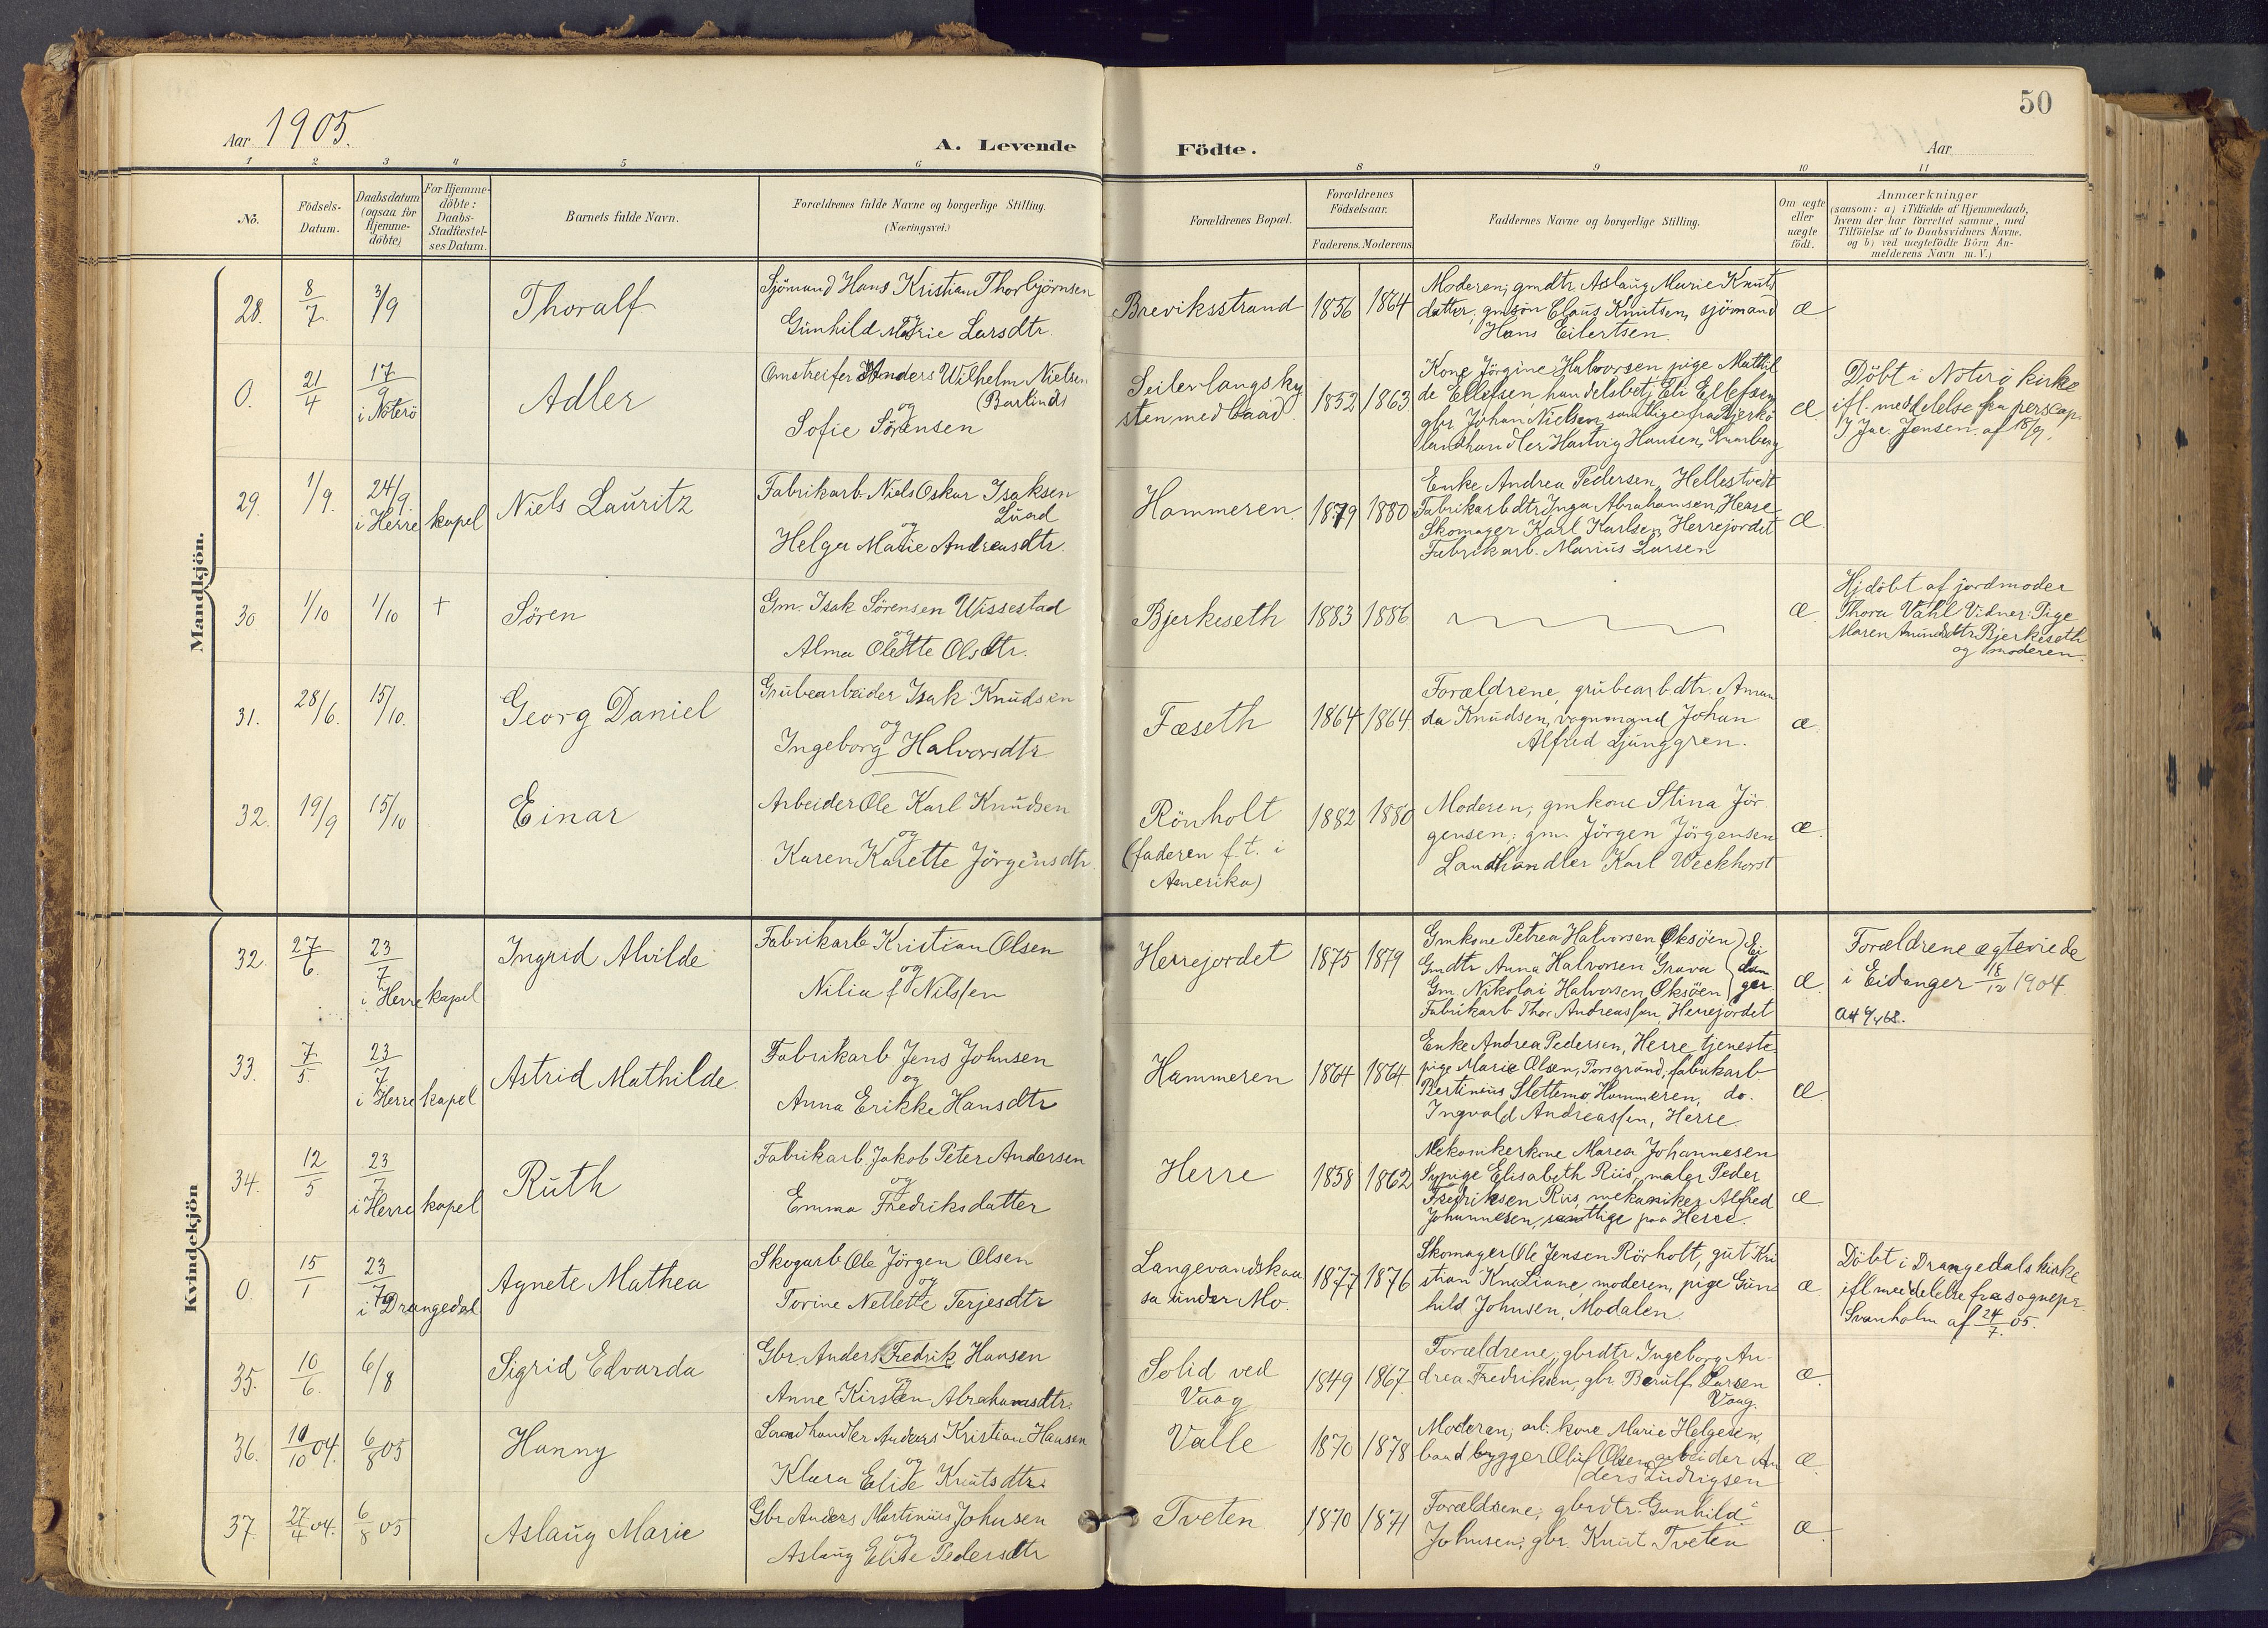 50
Aar 1905.
A. Levende Födte.
Aar
1 2 3 4 5 6 8 9 10 11
No.
Födsels-
Datum.
Daabsdatum
(ogsaa for
Hjemme-
döbte)
For Hjemme-
döbte:
Daabs-
Stadfæstel-
ses Datum.
Barnets fulde Navn.
Forældrenes fulde Navne og borgerlige Stilling.
(Næringsvei.)
Forældrenes Bopæl.
Forældrenes
Födselsaar.
Faderens. Moderens
Faddernes Navne og borgerlige Stilling.
Om ægte
eller
uægte
födt.
Anmærkninger
(saasom: a) i Tilfælde af Hjemmedaab,
hvem der har forrettet samme, med
Tilföielse af to Daabsvidners Navne.
og b) ved uægtefödte Börn An-
melderens Navn m. V.)
Mandkjön.
28. 8/7 3/9
Thoralf
Sjömand Hans Kristian Thorbjörnsen
og
Gunhild Marie Larsdtr.
Breviksstrand 1856 1864
Moderen; gmdtr Aslaug Marie Knuts
datter; gmsön Claus Knutsen, sjömand
Hans Eilertsen.
æ
0. 21/4 17/9
i Noterö
Adler
Omstreifer Anders Wilhelm Nielsen
(Barlind)
og
Sofie Sörensen
Seiler langs ky
sten med baad. 1852 1863
Kone Jörgine Halvorsen, pige Mathil
de Ellefsen, handelsbetj. Eli Ellefsen
gbr. Johan Nielsen, samtlige fra Bjerkö
landhandler Hartvig Hansen, Knarberg
æ
Döbt i Noterö kirke
ifl. meddelelse fra pers. cap.
J. Jac. Jensen af 18/9.
29. 1/9. 24/9.
i Herre kapel
Niels Lauritz
Fabrikarb. Niels Oskar Isaksen
Lund
og
Helga Marie Andreasdtr.
Hammeren. 1879 1880
Enke Andrea Pedersen, Hellestvedt
Fabrikarbdtr Inga Abrahamsen, Herre
Skomager Karl Karlsen, Herrejordet
Fabrikarb. Marius Larsen
æ
30 1/10 1/10 +
Sören
Gm. Isak Sörensen Wissestad
og
Alma Olette Olsdtr.
Bjerkeseth 1883 1886
æ
Hjdöbt af jordmoder
Thora Vahl Vidner: Pige
Maren Amundsdtr Bjerkeseth
og moderen.
31. 28/6. 15/10.
Georg Daniel
Grubearbeider Isak Knudsen
og
Ingeborg Halvorsdtr
Fæseth 1864 1864
Forældrene, grubearbdtr. Aman
da Knudsen, vognmand Johan
Alfred Ljunggren.
æ
32. 19/9 15/10
Einar
Arbeider Ole Karl Knudsen
og
Karen Karette Jörgensdtr
Rönholt
(faderen f. t. i
Amerika)
1882 1880
Moderen, gmkone Stina Jör
gensen; gm. Jörgen Jörgensen
Landhandler Karl Weckhorst
æ.
Kvindekjön
32. 27/6. 23/7
i Herre kapel
Ingrid Alvilde
Fabrikarb Kristian Olsen
og
Nilia f. Nilssen
Herrejordet 1875 1879
Gmkone Petrea Halvorsen Oksöen
Gmdtr Anna Halvorsen Grava
Gm. Nikolai Halvorsen Oksöen
Ei
dan
ger
Fabrikarb Thor Andreassen, Herrejordet
æ
Forældrene ægteviede
i Eidanger 18/12 1904.
33. 7/5. 23/7
i Herre kapel
Astrid Mathilde.
Fabrikarb Jens Johnsen
og
Anna Erikke Hansdtr
Hammeren 1864 1864
Enke Andrea Pedersen, Herre, tjeneste
pige Marie Olsen, Porsgrund, fabrikarb.
Bertinius Slettemo Hammeren, do.
Ingvald Andreassen, Herre.
æ
34. 12/5 23/7
i Herre kapel
Ruth
Fabrikarb. Jakob Peter Andersen
og
Emma Fredriksdatter
Herre 1858 1862
Mekanikerkone Marea Johannesen
Sypige Elisabeth Riis, maler Peder
Fredriksen Riis, mekaniker Alfred
Johannesen, samtlige paa Herre.
æ
0. 15/1 23/7
i Drangedal
Agnete Mathea
Skogarb Ole Jörgen Olsen
og
Torine Nellette Terjesdtr
Langevandskaa
sa under Mo. 1877 1876
Skomager Ole Jensen Rörholt, gut Kri
stian Knaliane, moderen, pige Gun
hild Johnsen, Modalen.
æ
Döbt i Drangedals kirke
ifl meddelelse fra sognepr.
Svanholm af 24/7. 05.
35. 10/6. 6/8
Sigrid Edvarda
Gbr. Anders Fredrik Hansen
og
Anne Kirsten Abrahamsdtr.
Solid ved
Vaag 1849 1867
Forældrene, gbrdtr. Ingeborg An-
drea Fredriksen, gbr. Berulf Larsen
Vaag.
æ.
36. 10/10 04. 6/8 05
Hanny
Landhandler Anders Kristian Hansen
og
Klara Elise Knutsdtr.
Valle 1870 1878
Moderen, arb. kone Marie Helgesen,
baadbygger Oluf Olsen, arbeider An
ders Ludvigsen
æ.
37. 27/4 04. 6/8 05
Aslaug Marie
Gbr. Anders Martinius Johnsen
og
Aslaug Elise Pedersdtr
Tveten 1870 1871
Forældrene; gbrdtr. Gunhild
Johnsen; gbr. Knut Tveten
æ.